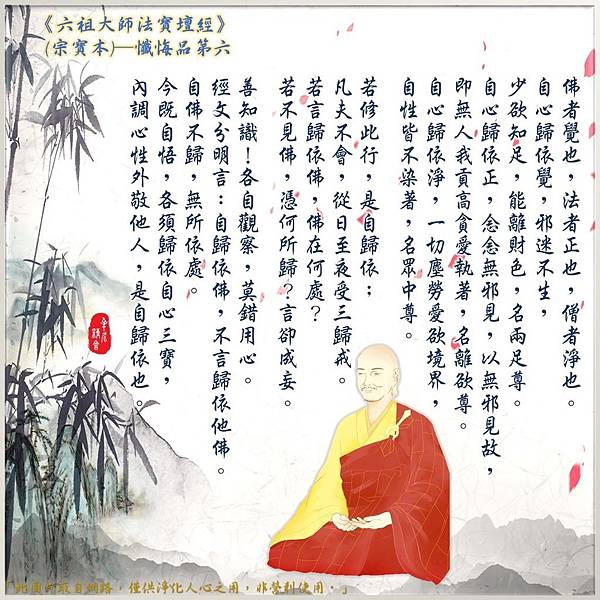 《六祖大師法寶壇經》
(宗寶本)—懺悔品第六
佛者覺也,法者正也,僧者淨也。
自心歸依覺,邪迷不生,
少欲知足,能離財色,名兩足尊。
自心歸依正,念念無邪見,以無邪見故,
即無人我貢高貪愛執著,名離欲尊。
自心歸依淨,一切塵勞愛欲境界,
自性皆不染著,名眾中尊。
若修此行,是自歸依;
凡夫不會,從日至夜受三歸戒。
若言歸依佛,佛在何處?
若不見佛,憑何所歸?言卻成妄。
善知識!各自觀察,莫錯用心。
經文分明言:自歸依佛,不言歸依他佛。
自佛不歸,無所依處。
今既自悟,各須歸依自心三寶,
內調心性外敬他人,是自歸依也。
「此圖所取自網路,僅供淨化人心之用,非營利使用。」